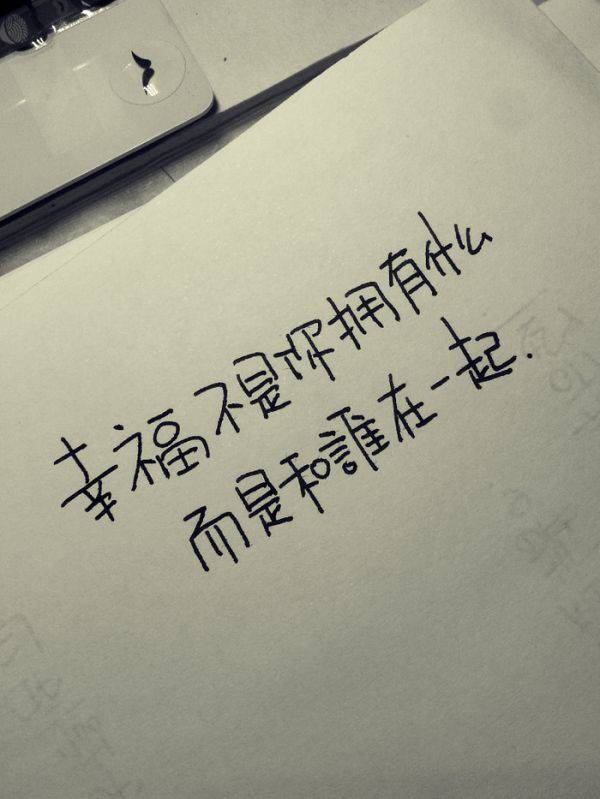 幸福不是你拥有什么
而是和誰在一起.